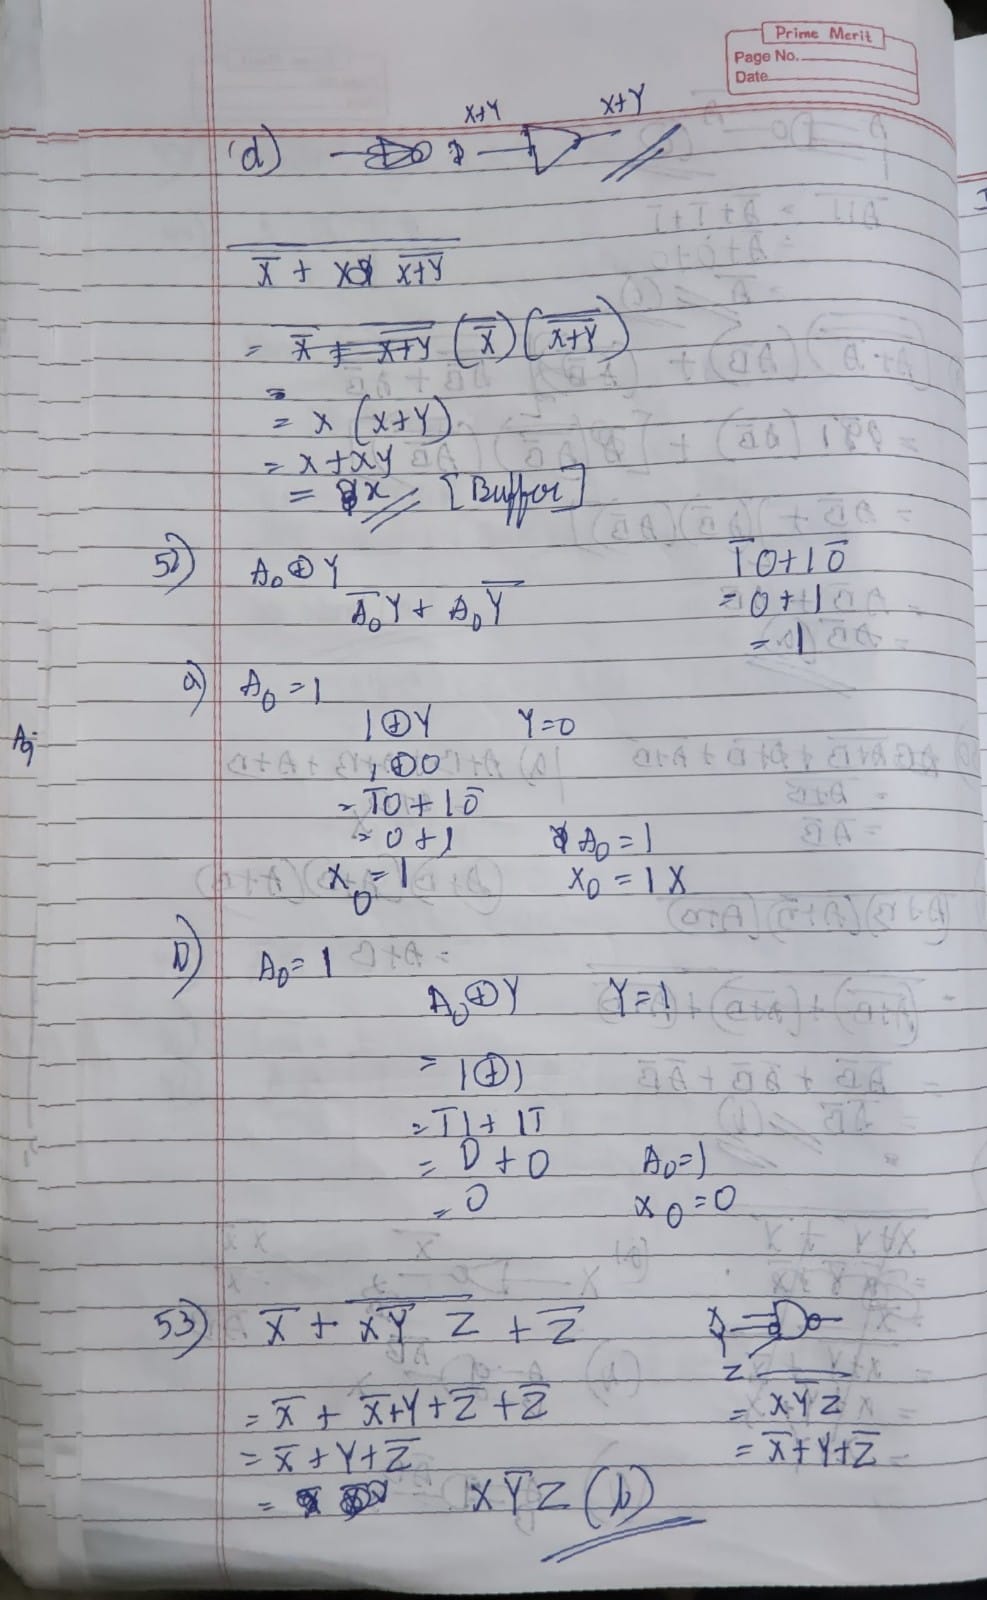 Prime Merit
Page No.
Date
X+Y X+Y
(d)
X̅ + X X̅+̅Y̅
= X̅ + X̅+̅Y̅ (X̅) (X̅+̅Y̅)
=
= X (X+Y)
= X + XY
= X [Buffer]
52) A₀ ⊕ Y
A̅₀Y + A₀Y̅
1̅0 + 10̅
= 0 + 1
= 1
a) A₀ = 1
1 ⊕ Y Y = 0
1 ⊕ 0
= 1̅0 + 10̅
= 0 + 1 A₀ = 1
X₀ = 1 X₀ = 1 X
b) A₀ = 1
A₀ ⊕ Y Y = 1
= 1 ⊕ 1
= 1̅1 + 11̅
= 0 + 0 A₀ = 1
= 0 X₀ = 0
53) X̅ + X̅Y̅ Z + Z̅
= X̅ + X̅ + Y + Z̅ + Z̅
= X̅ + Y + Z̅
= XY̅Z (b)
X
Y
Z
= XY̅Z
= X̅ + Y + Z̅